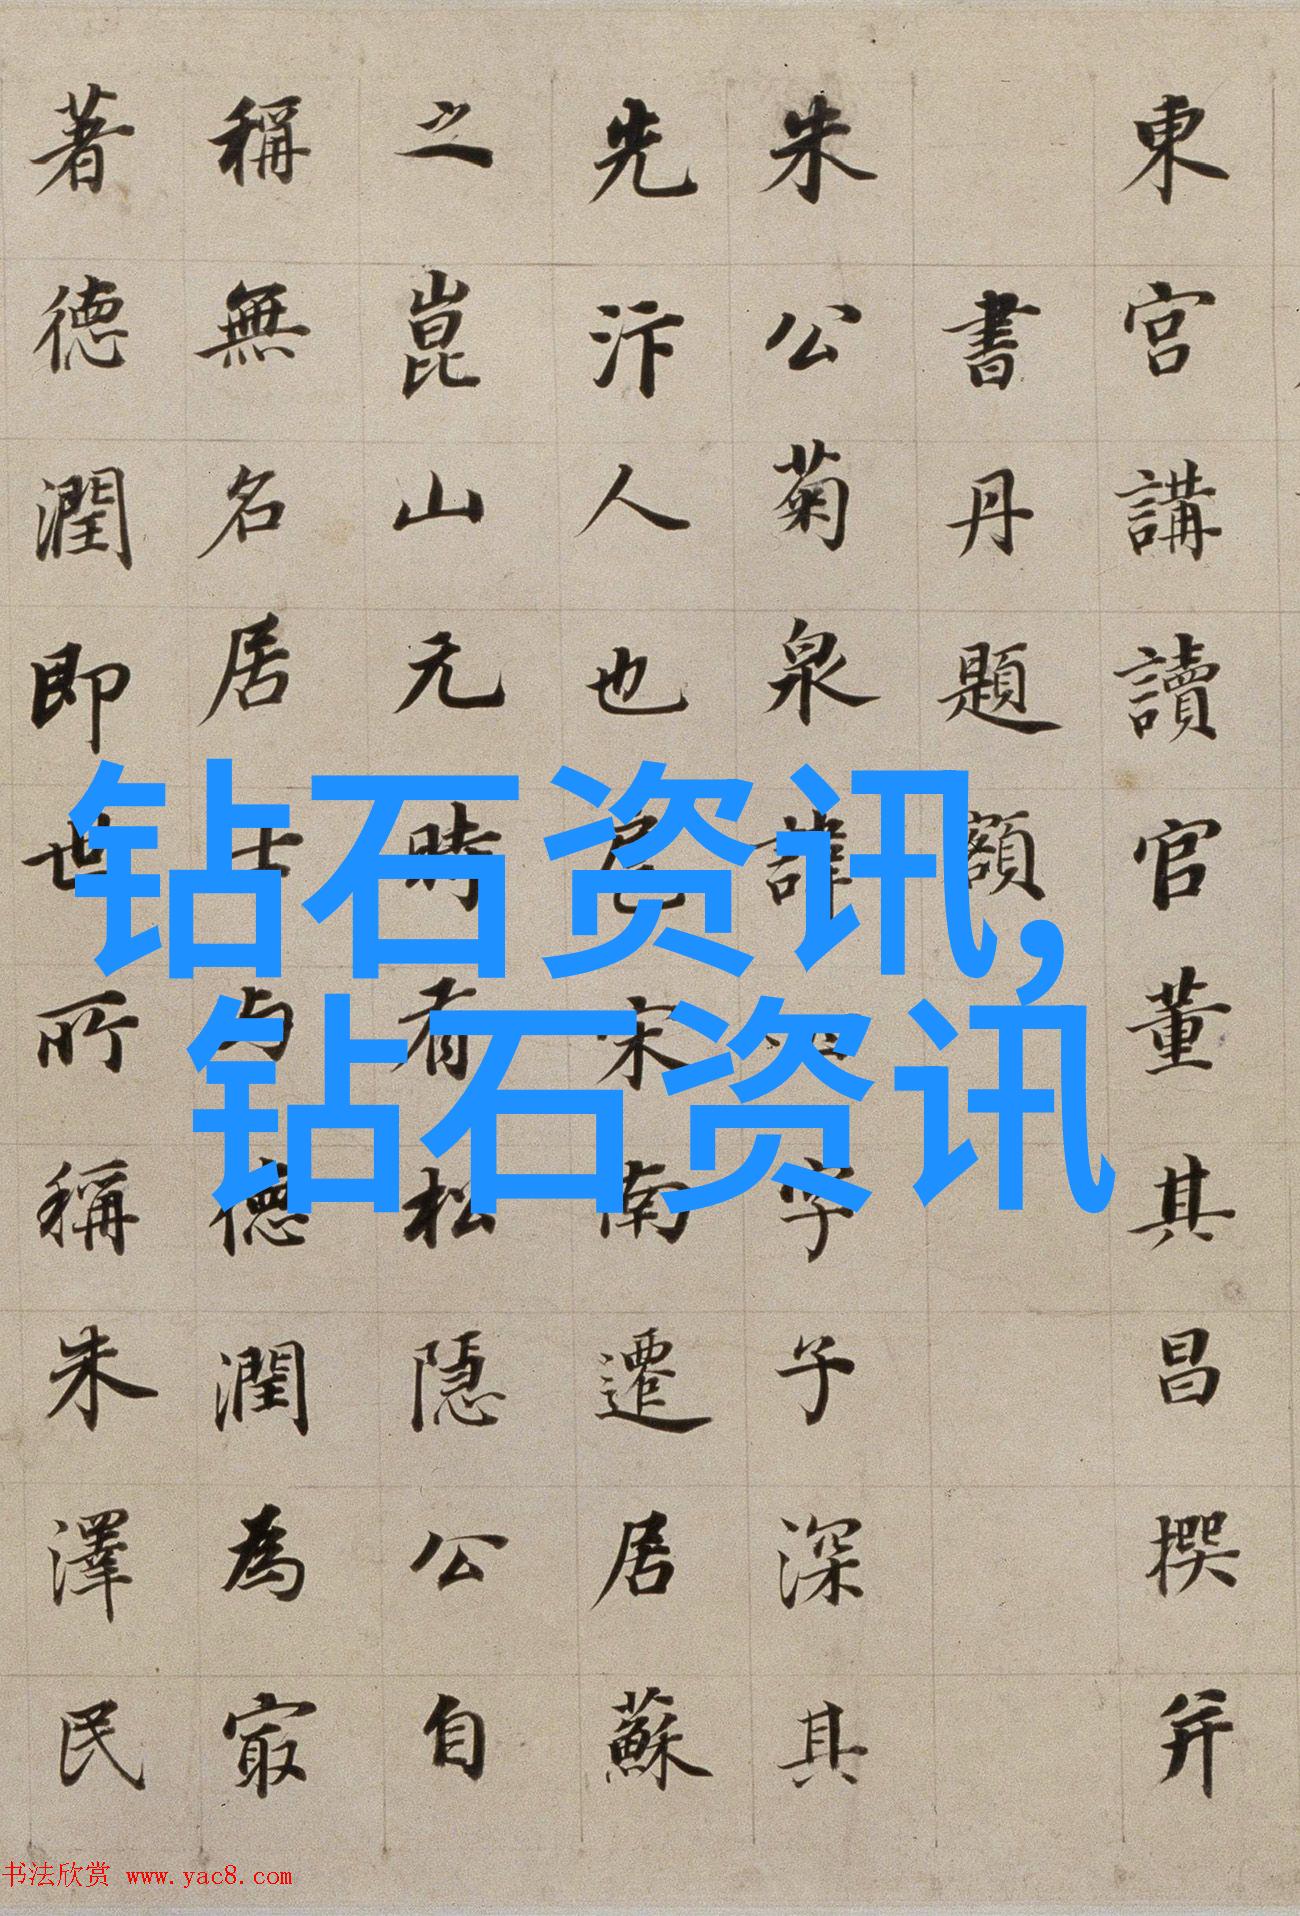 東宮講讀官董其昌撰并
書丹題額
朱公菊泉諱字子深其
先汴人也扈宋南遷居蘇
之崑山元時有松隱公自
稱無名居士与德潤為㝡
著德潤即世所稱朱澤民
钻石资讯,
钻石资讯
书法欣赏 www.yac8.com